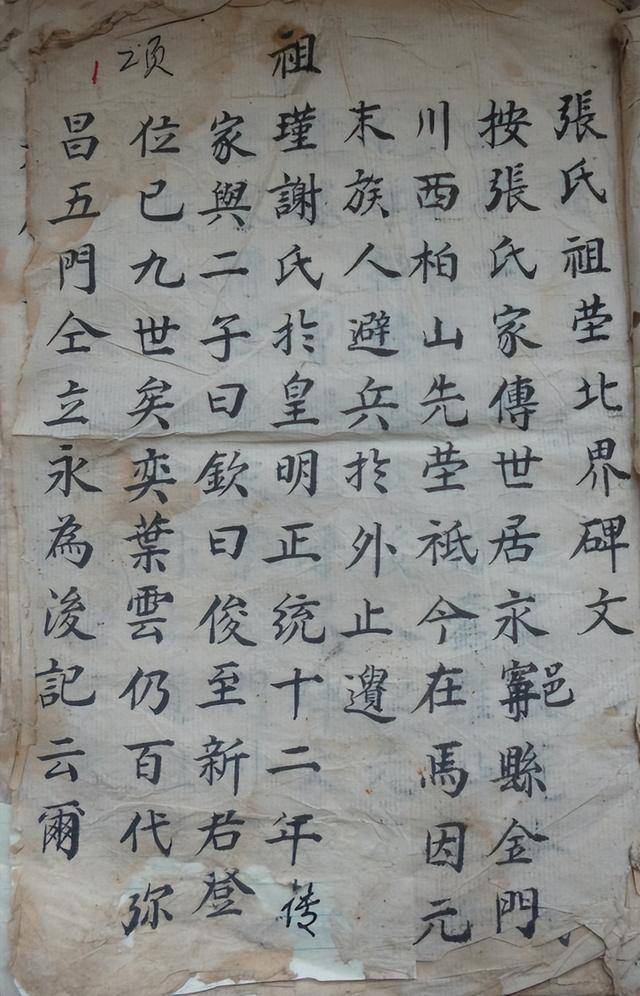 張氏祖茔北界碑文
按張氏家傳世居永寧邑縣金門
川西柏山先茔祇今在焉因元
末族人避兵於外止遺
祖瑾謝氏於皇明正统十二年传
家與二子曰欽曰俊至新君登
位已九世矣奕葉雲仍百代弥
昌五門仝立永為後記云爾
1 2页